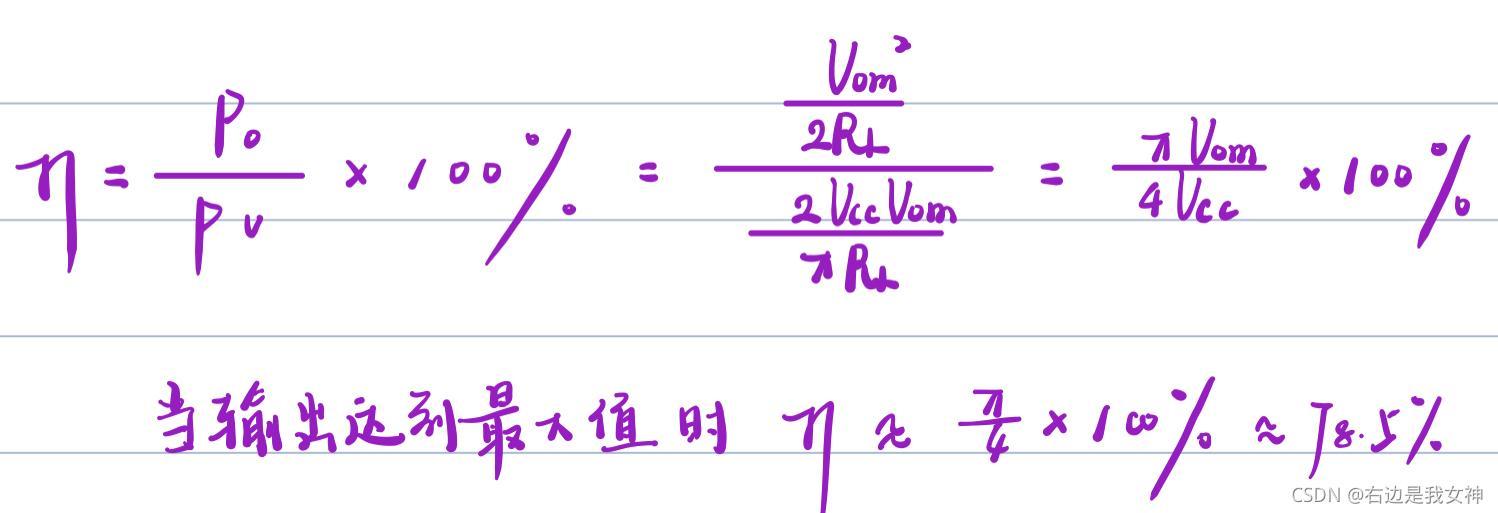 η = Po / Pv × 100% = (Vom² / 2RL) / (2VccVom / πRL) = πVom / 4Vcc × 100%
当输出达到最大值时 η ≈ π/4 × 100% ≈ 78.5%
CSDN @右边是我女神